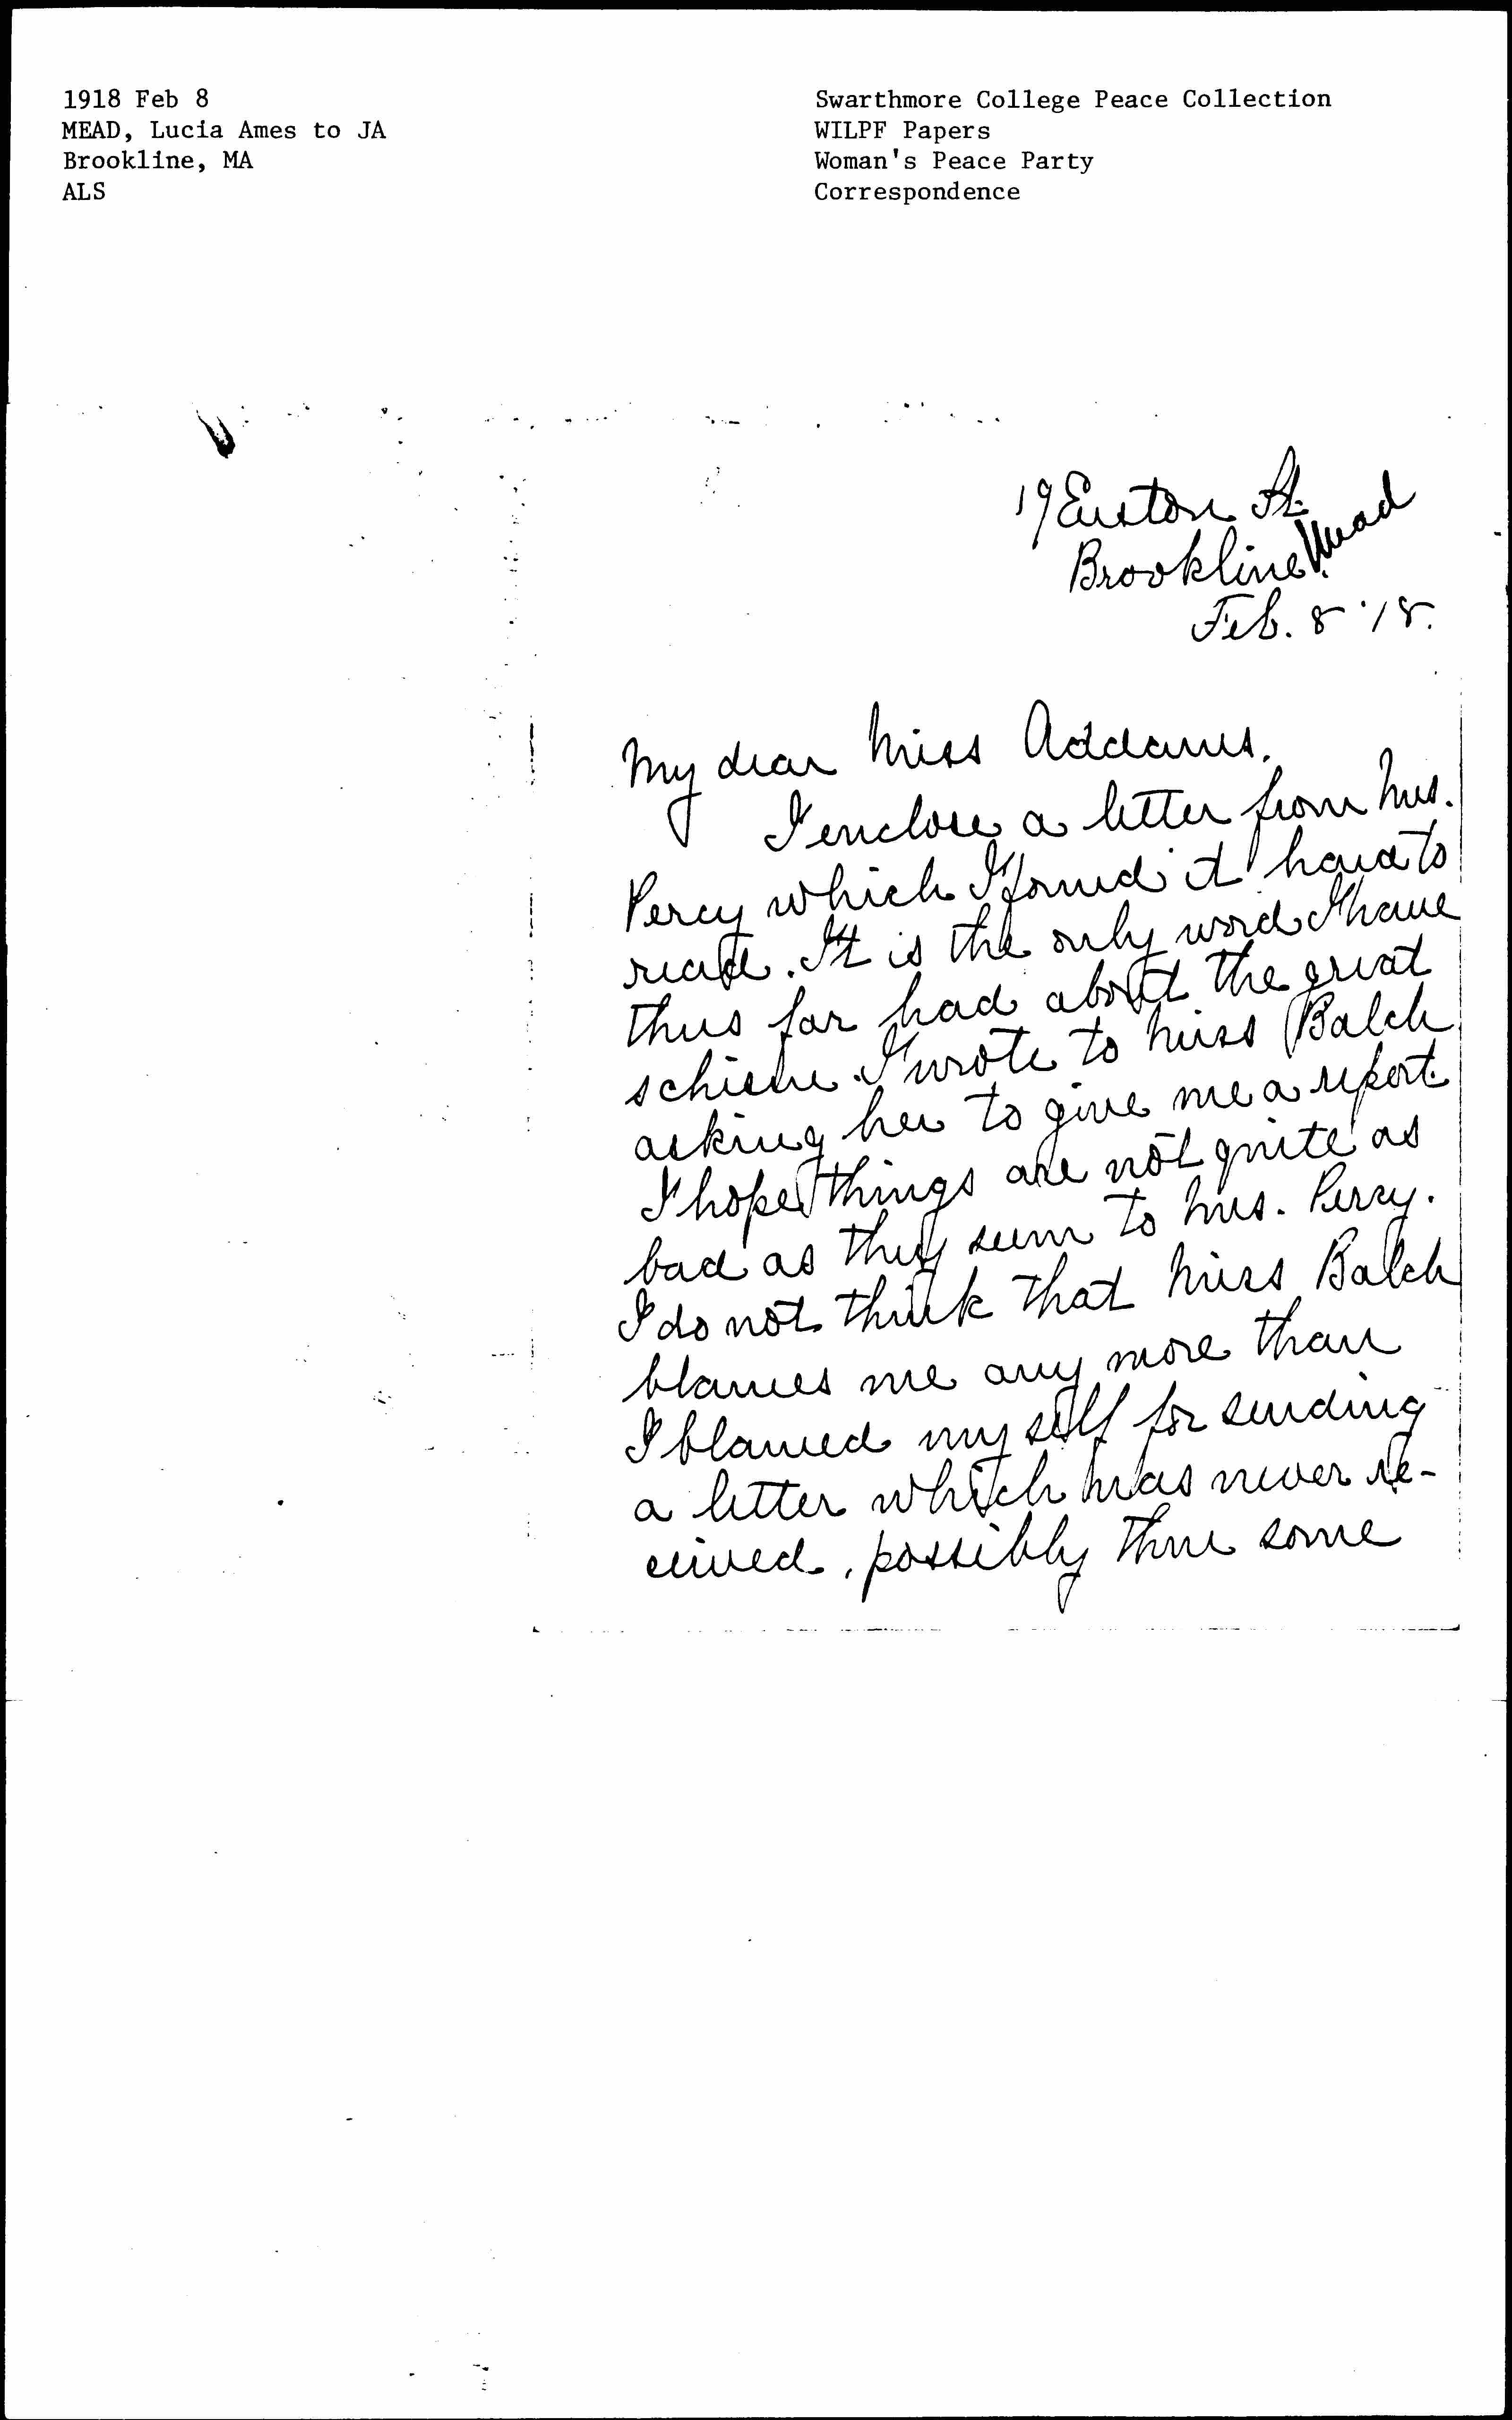 1918 Feb 8
MEAD, Lucia Ames to JA
Brookline, MA
ALS
Swarthmore College Peace Collection
WILPF Papers
Woman's Peace Party
Correspondence
19 Euston St.
Mead
Brookline.
Feb. 8 '18.
My dear Miss Addams.
I enclose a letter from Mrs.
Percy which I found it hard to
read. It is the only word I have
thus far had about the great
schism. I wrote to Miss Balch
asking her to give me a report.
I hope things are not quite as
bad as they seem to Mrs. Percy.
I do not think that Miss Balch
blames me any more than
I blamed myself for sending
a letter which was never re-
ceived, possibly thru some